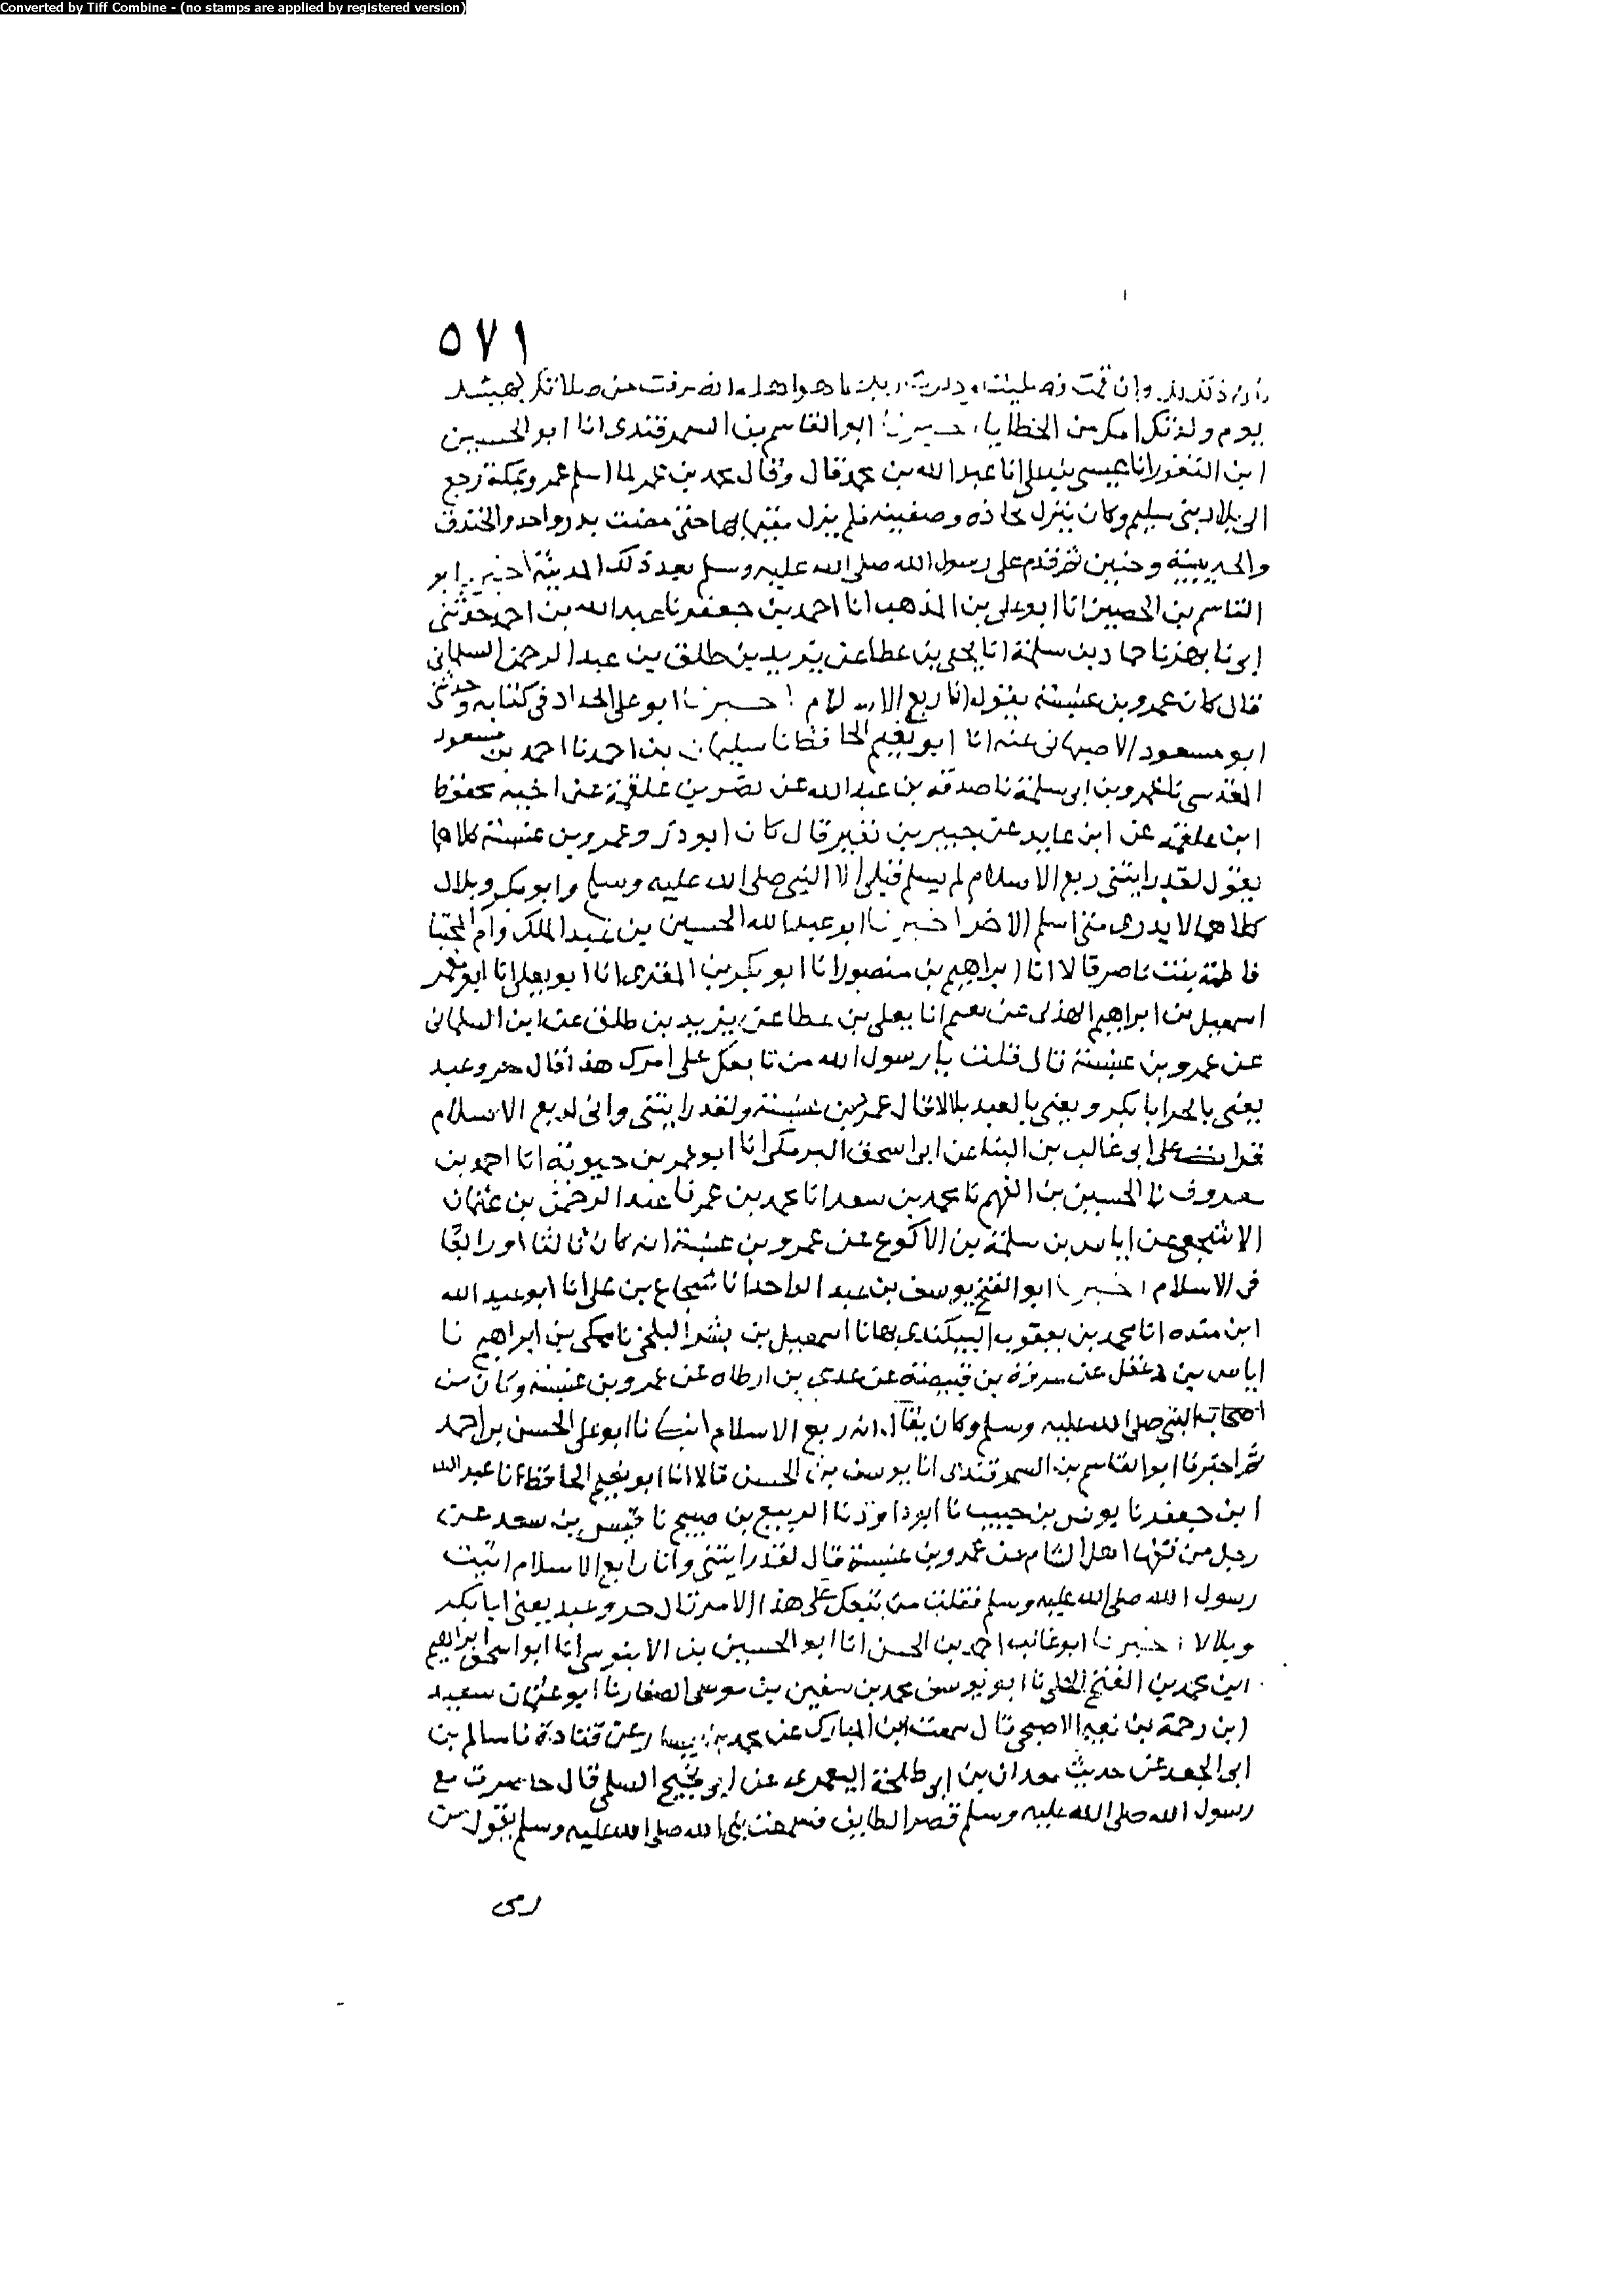 Converted by Tiff Combine - (no stamps are applied by registered version)
٥٧١
وان قمت فصليت ربك بما هو اهله انصرفت من صلاتك كهيئتك
يوم ولدتك امك من الخطايا اخبرنا ابو القاسم بن السمرقندي انا ابو الحسين
ابن النقور انا عيسى بن علي انا عبد الله بن محمد قال وقال محمد بن عمر لما اسلم عمرو بمكة رجع
الى بلاد بني سليم وكان ينزل بحاذه وصفينه فلم يزل مقيما بها حتى مضت بدر واحد والخندق
والحديبية وحنين ثم قدم على رسول الله صلى الله عليه وسلم بعد ذلك المدينة اخبرنا ابو
القاسم بن الحصين انا ابو علي بن المذهب انا احمد بن جعفر نا عبد الله بن احمد حدثني
ابي نا بهز نا حماد بن سلمة انا يعلى بن عطا عن يزيد بن طلق بن عبد الرحمن السلماني
قال كان عمرو بن عبسة يقول انا ربع الاسلام اخبرنا ابو علي الحداد في كتابه وحدثني
ابو مسعود الاصبهاني عنه انا ابو نعيم الحافظ نا سليمان بن احمد نا احمد بن مسعود
المقدسي نا عمرو بن ابي سلمة نا صدقة بن عبد الله عن نصر بن علقمة عن اخيه محفوظ
ابن علقمة عن ابن عايد عن جبير بن نفير قال كان ابو ذر وعمرو بن عبسة كلاهما
يقول لقد رايتني ربع الاسلام لم يسلم قبلي الا النبي صلى الله عليه وسلم وابو بكر وبلال
كلاهما لا يدري متى اسلم الاخر اخبرنا ابو عبد الله الحسين بن عبد الملك وام المجتبا
فاطمة بنت ناصر قالا انا ابراهيم بن منصور انا ابو بكر بن المقري انا ابو يعلى نا ابو معمر
اسمعيل بن ابراهيم الهذلي عن هشيم انا يعلى بن عطا عن يزيد بن طلق عن ابن السلماني
عن عمرو بن عبسة قال قلت يا رسول الله من تابعك على امرك هذا قال حر وعبد
يعني بالحر ابا بكر ويعني بالعبد بلالا قال عمرو بن عبسة ولقد رايتني واني لربع الاسلام
قرات على ابي غالب بن البنا عن ابي اسحق البرمكي انا ابو عمر بن حيوية انا احمد بن
معروف نا الحسين بن الفهم نا محمد بن سعد انا محمد بن عمر نا عبد الرحمن بن عثمان
الاشجعي عن اياس بن سلمة بن الاكوع عن عمرو بن عبسة انه كان ثالثا او رابعا
في الاسلام اخبرنا ابو الفتح يوسف بن عبد الواحد انا شجاع بن علي انا ابو عبد الله
ابن منده انا محمد بن يعقوب البيكندي بها نا اسمعيل بن بشر البلخي نا مكي بن ابراهيم نا
اياس بن دغفل عن بن قبيصة عن عدي بن ارطاه عن عمرو بن عبسة وكان من
اصحاب النبي صلى الله عليه وسلم وكان يقال انه ربع الاسلام انبانا ابو علي الحسن بن احمد
ثم اخبرنا ابو القاسم بن السمرقندي انا يوسف بن الحسن قالا انا ابو نعيم الحافظ انا عبد الله
ابن جعفر نا يونس بن حبيب نا ابو داود نا الربيع بن صبيح نا قيس بن سعد عن
رجل من فقها اهل الشام عن عمرو بن عبسة قال لقد رايتني وانا رابع الاسلام اتيت
رسول الله صلى الله عليه وسلم فقلت من تبعك على هذا الامر قال حر وعبد يعني ابا بكر
وبلالا اخبرنا ابو غالب احمد بن الحسن انا ابو الحسين بن الابنوسي انا ابو اسحق ابراهيم
ابن محمد بن الفتح الجلي نا ابو يوسف محمد بن سفين بن موسى الصفار نا ابو عثمان سعيد
ابن رحمة بن نعيم الاصبحي قال سمعت ابن المبارك عن محمد بن يسار عن قتادة نا سالم بن
ابي الجعد عن حديث معدان بن ابي طلحة اليعمري عن ابي نجيح السلمي قال حاصرت مع
رسول الله صلى الله عليه وسلم قصر الطايف فسمعت نبي الله صلى الله عليه وسلم يقول من
رمى